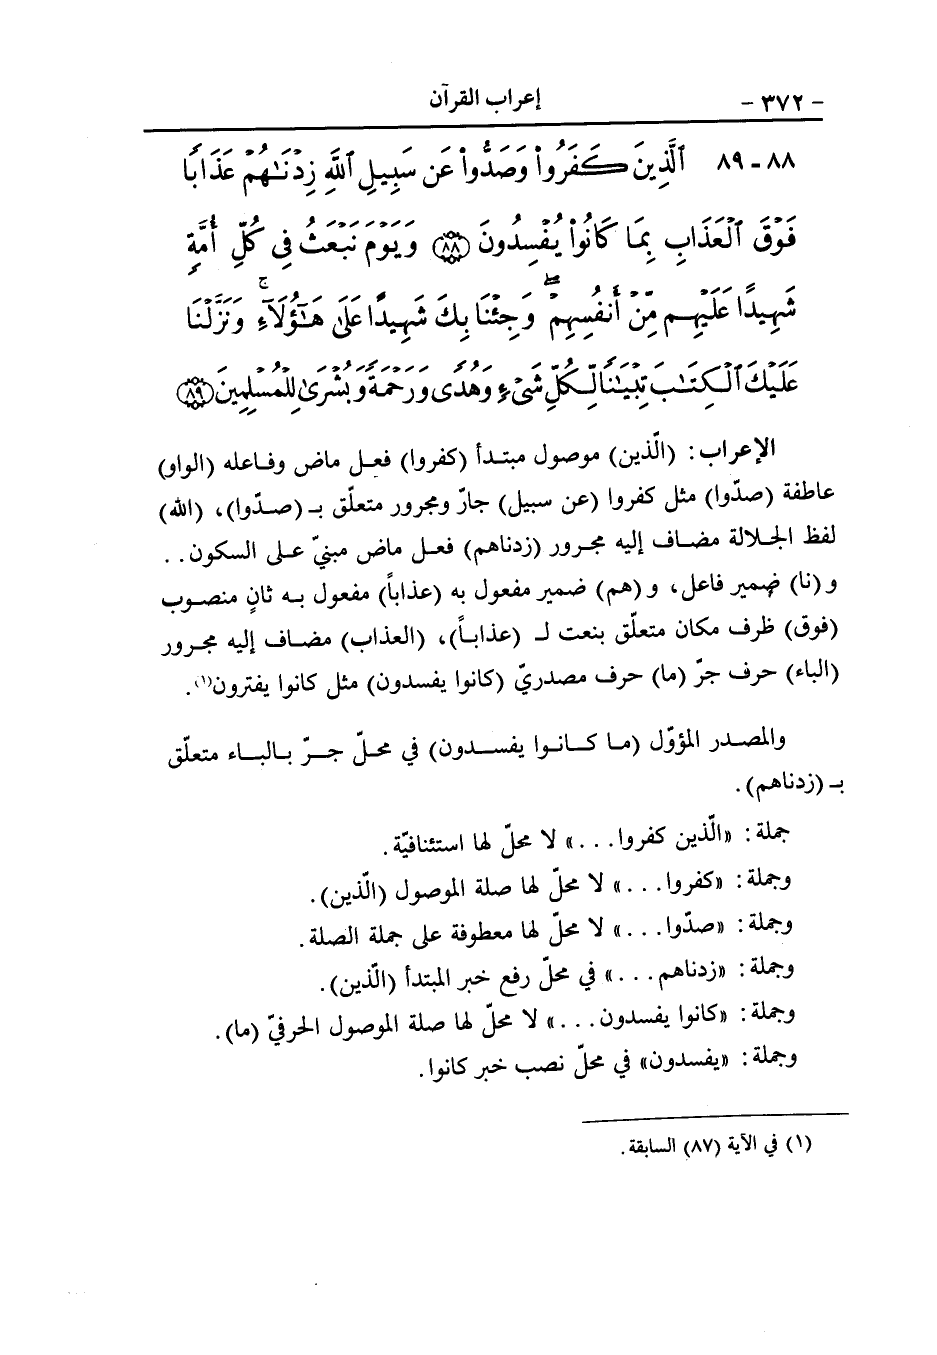 - ٣٧٢ - إعراب القرآن
٨٨ - ٨٩ ٱلَّذِينَ كَفَرُواْ وَصَدُّواْ عَن سَبِيلِ ٱللَّهِ زِدْنَٰهُمْ عَذَابًا
فَوْقَ ٱلْعَذَابِ بِمَا كَانُواْ يُفْسِدُونَ ﴿٨٨﴾ وَيَوْمَ نَبْعَثُ فِى كُلِّ أُمَّةٍ
شَهِيدًا عَلَيْهِم مِّنْ أَنفُسِهِمْۖ وَجِئْنَا بِكَ شَهِيدًا عَلَىٰ هَٰٓؤُلَآءِۚ وَنَزَّلْنَا
عَلَيْكَ ٱلْكِتَٰبَ تِبْيَٰنًا لِّكُلِّ شَىْءٍ وَهُدًى وَرَحْمَةً وَبُشْرَىٰ لِلْمُسْلِمِينَ ﴿٨٩﴾
الإعراب: (الّذين) موصول مبتدأ (كفروا) فعل ماض وفاعله (الواو)
عاطفة (صدّوا) مثل كفروا (عن سبيل) جارّ ومجرور متعلّق بـ (صدّوا)، (الله)
لفظ الجلالة مضاف إليه مجرور (زدناهم) فعل ماض مبنيّ على السكون . .
و(نا) ضمير فاعل، و(هم) ضمير مفعول به (عذاباً) مفعول به ثانٍ منصوب
(فوق) ظرف مكان متعلّق بنعت لـ (عذاباً)، (العذاب) مضاف إليه مجرور
(الباء) حرف جرّ (ما) حرف مصدريّ (كانوا يفسدون) مثل كانوا يفترون(١).
والمصدر المؤوّل (ما كانوا يفسدون) في محلّ جرّ بالباء متعلّق
بـ (زدناهم).
جملة: «الّذين كفروا. . .» لا محلّ لها استئنافيّة.
وجملة: «كفروا. . .» لا محلّ لها صلة الموصول (الّذين).
وجملة: «صدّوا. . .» لا محلّ لها معطوفة على جملة الصلة.
وجملة: «زدناهم. . .» في محلّ رفع خبر المبتدأ (الّذين).
وجملة: «كانوا يفسدون. . .» لا محلّ لها صلة الموصول الحرفيّ (ما).
وجملة: «يفسدون» في محلّ نصب خبر كانوا.
(١) في الآية (٨٧) السابقة.